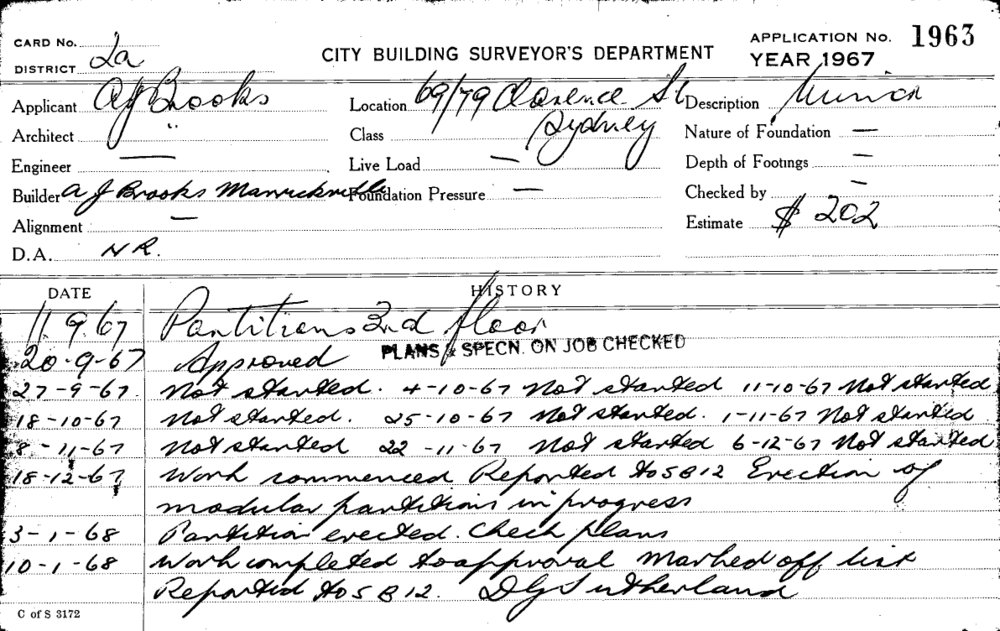 CARD No. 2a
DISTRICT
CITY BUILDING SURVEYOR'S DEPARTMENT
APPLICATION No. 1963
YEAR 1967
Applicant A J Brooks
Location 69/79 Clarence St Sydney
Description Minor
Architect "
Class
Nature of Foundation —
Engineer —
Live Load —
Depth of Footings —
Builder A J Brooks Marrickville
Foundation Pressure —
Checked by —
Alignment —
Estimate $ 202
D.A. NR.
DATE HISTORY
11.9.67 Partitions 3rd floor
20-9-67 Approved PLANS & SPECN. ON JOB CHECKED
27-9-67. Not started. 4-10-67 Not started 11-10-67 Not started
18-10-67 Not started. 25-10-67 Not started. 1-11-67 Not started
8-11-67 Not started 22-11-67 Not started 6-12-67 Not started
18-12-67 Work commenced Reported to SB12 Erection of
modular partitions in progress
3-1-68 Partition erected. Check plans
10-1-68 Work completed to approval Marked off list
Reported to SB12. DG Sutherland
C of S 3172